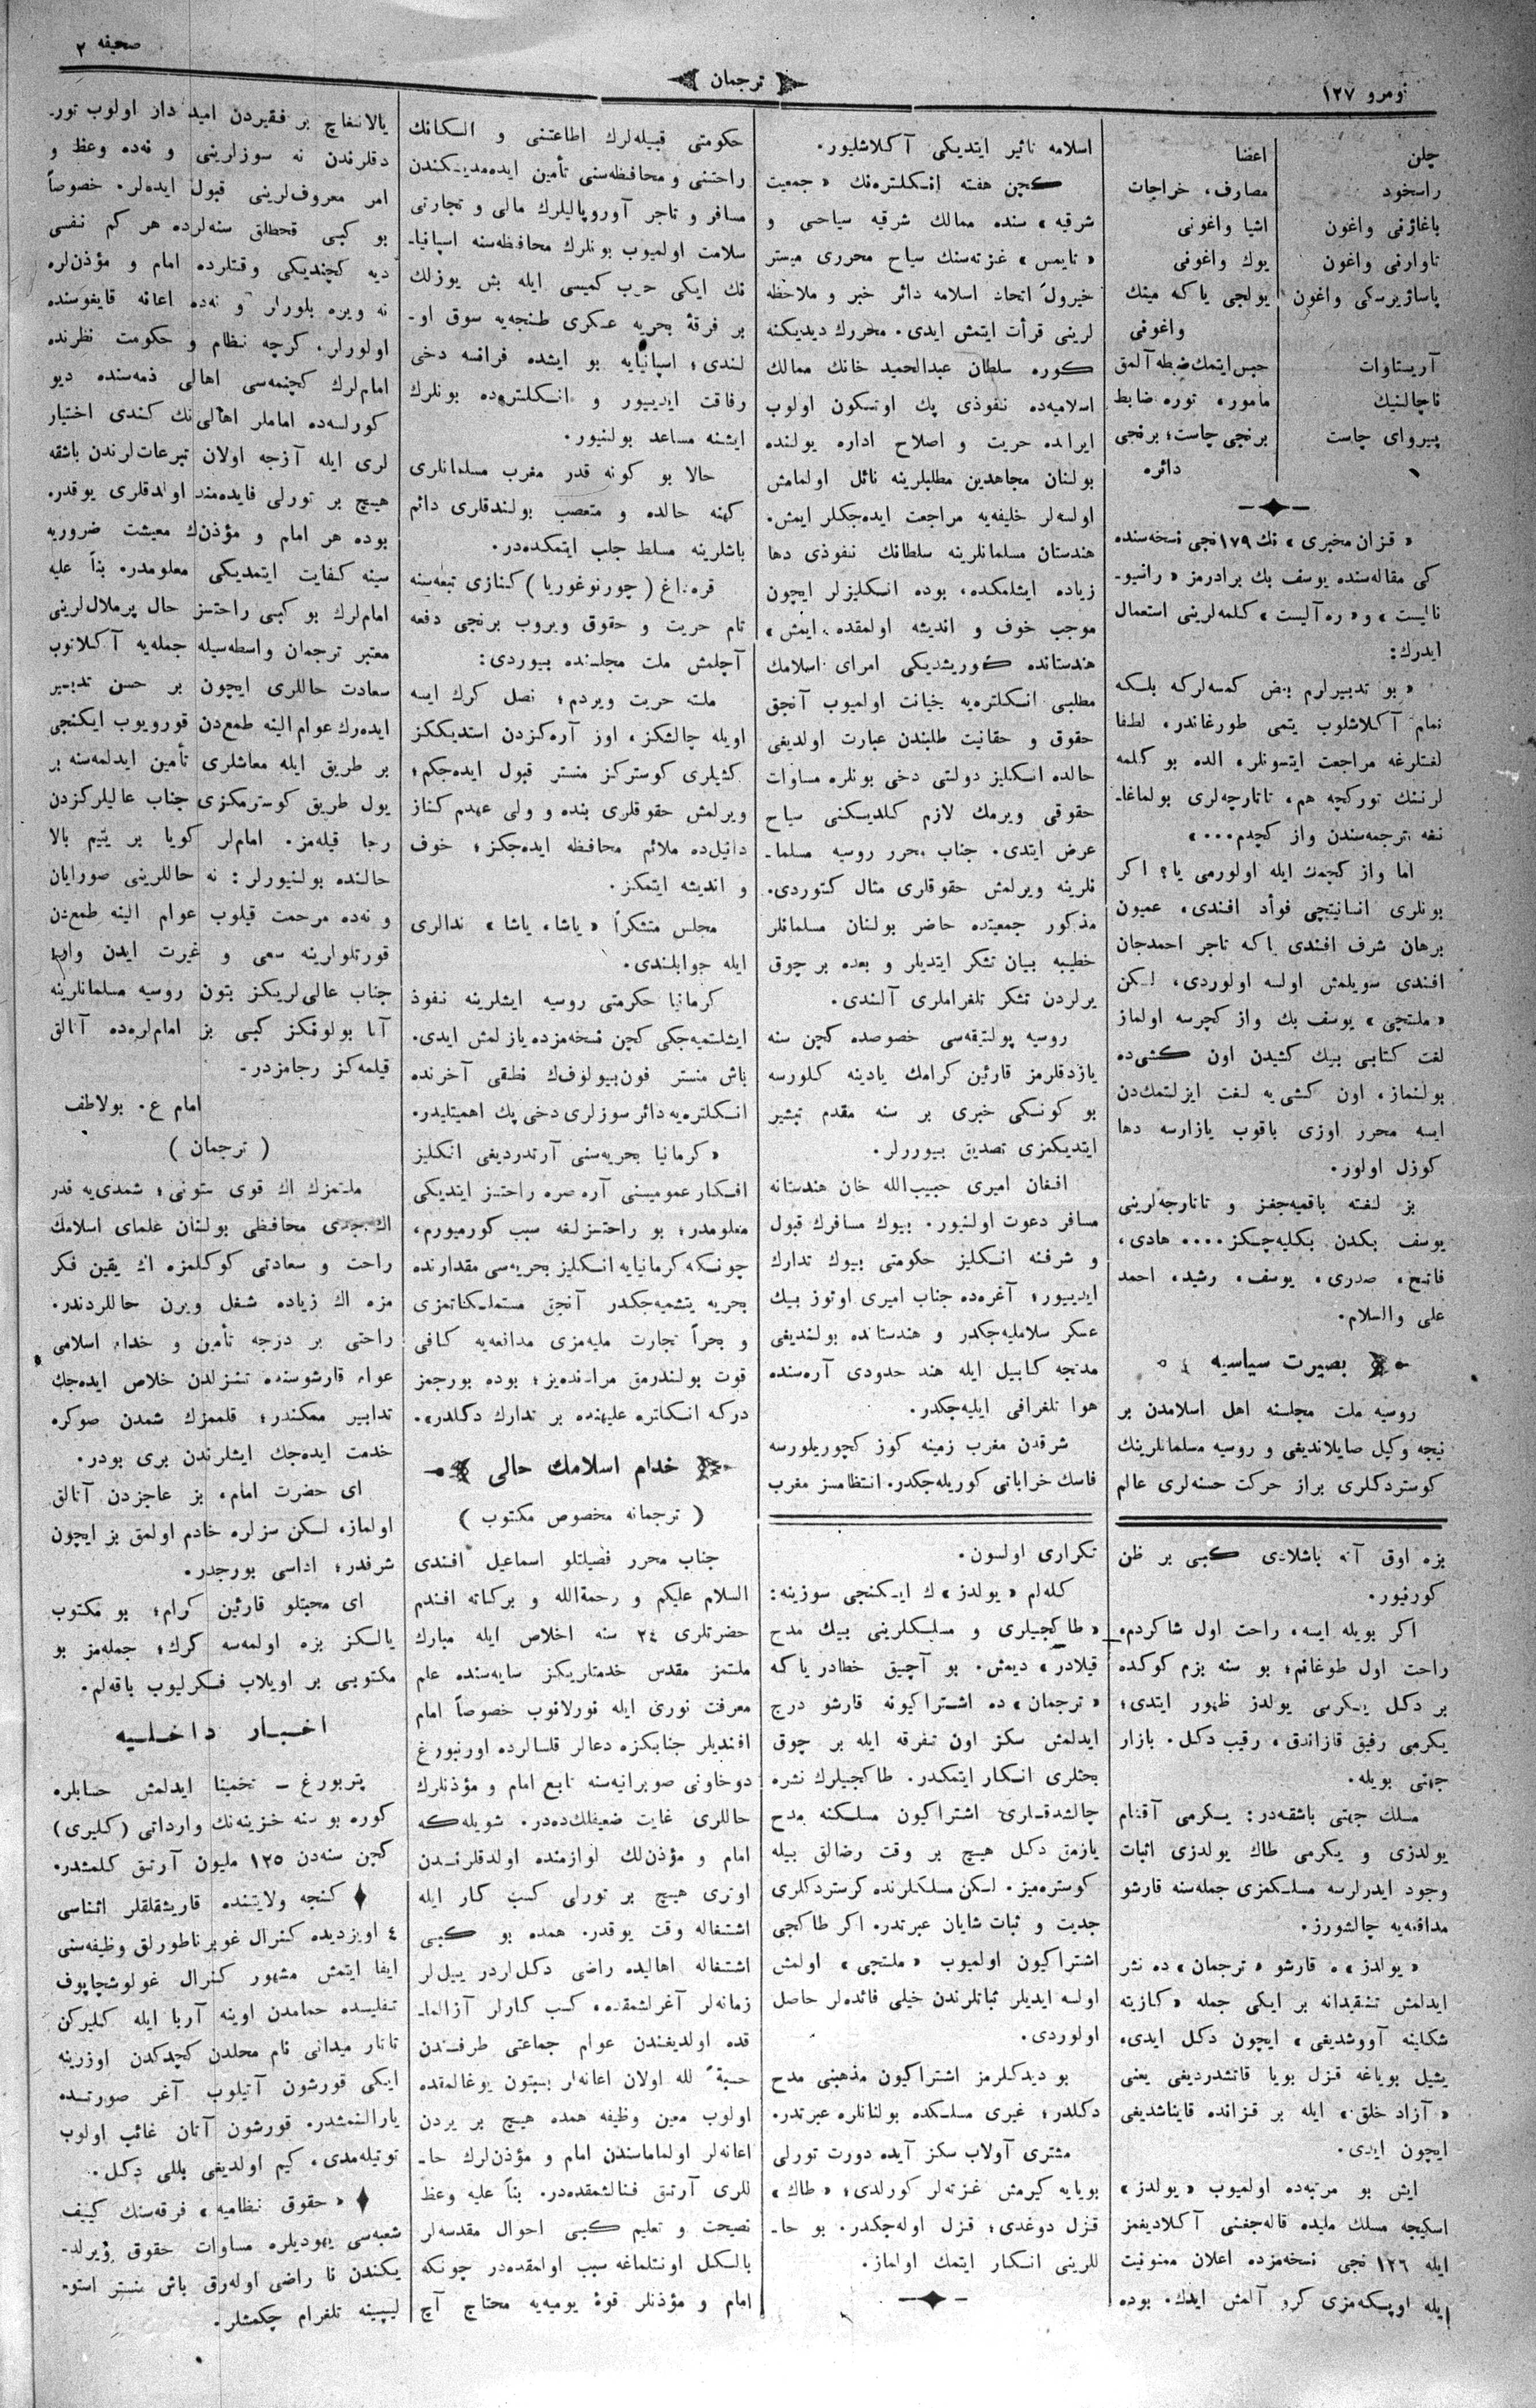 نومرو ١٢٧
ترجمان
صحیفه ٢
چلن اعضا
راسخود مصارف، خراجات
باغاژنی واغون اشیا واغونی
تاوارنی واغون یوك واغونی
پاساژیرسكی واغون یولجی یاكه مینك
واغونی
آریستاوات حبس ایتمك ضبطه آلمق
ناچالنیك مأمور، توره ضابط
پیروای چاست برنجی چاست؛ برنجی
دائره
« قزان مخبری » نك ١٧٩ نجی نسخه‌سنده
كی مقاله‌سنده یوسف بك برادرمز « راتسیو-
نالیست » و « ره‌آلیست » كلمه‌لرینی استعمال
ایدرك:
« بو تدبیرلرم بعض كمسه‌لركه بلكه
تمام آكلاشلوب یتمی طورغاندر، لطفا
لغتلرغه مراجعت ایتسونلر، الده بو كلمه
لرنك توركچه هم، تاتارچه‌لری بولماغا-
نغه ترجمه‌سندن واز كچدم... »
اما واز كچمك ایله اولورمی یا؟ اكر
بونلری انسانیتچی فوأد افندی، عمیون
برهان شرف افندی یاكه تاجر احمدجان
افندی سویلمش اولسه اولوردی، لكن
« ملتچی » یوسف بك واز كچرسه اولماز
لغت كتابی بیك كشیدن اون كشی‌ده
بولنماز، اون كشی‌یه لغت ایزلتمك‌دن
ایسه محرر اوزی باقوب یازارسه دها
كوزل اولور.
بز لغته باقمیه‌جغز و تاتارجه‌لرینی
یوسف بكدن بكلیه‌جكز.... هادی،
فاتح، صدری، یوسف، رشید، احمد
علی والسلام.
بصیرت سیاسیه
روسیه ملت مجلسنه اهل اسلامدن بر
نیجه وكیل صایلاندیغی و روسیه مسلمانلرینك
كوستردكلری براز حركت حسنه‌لری عالم
اسلامه تاثیر ایتدیكی آكلاشلیور.
كچن هفته انكلتره‌نك « جمعیت
شرقیه » سنده ممالك شرقیه سیاحی و
« تایمس » غزته‌سنك سیاح محرری میستر
خیرول اتحاد اسلامه دائر خبر و ملاحظه
لرینی قرأت ایتمش ایدی. محررك دیدیكنه
كوره سلطان عبدالحمید خانك ممالك
اسلامیه‌ده نفوذی پك اوتسكون اولوب
ایرانده حریت و اصلاح اداره یولنده
بولنان مجاهدین مطلبلرینه نائل اولمامش
اولسه‌لر خلیفه‌یه مراجعت ایده‌جكلر ایمش.
هندستان مسلمانلرینه سلطانك نفوذی دها
زیاده ایشلمكده، بوده انكلیزلر ایچون
موجب خوف و اندیشه اولمقده ایمش،
هندستانده كوریشدیكی امرای اسلامك
مطلبی انكلتره‌یه خیانت اولمیوب آنجق
حقوق و حقانیت طلبندن عبارت اولدیغی
حالده انكلیز دولتی دخی بونلره مساوات
حقوقی ویرمك لازم كلدیكنی سیاح
عرض ایتدی. جناب محرر روسیه مسلما-
نلرینه ویرلمش حقوقلری مثال كتوردی.
مذكور جمعیتده حاضر بولنان مسلمانلر
خطیبه بیان تشكر ایتدیلر و بعده بر چوق
یرلردن تشكر تلغراملری آلندی.
روسیه پولتیقه‌سی خصوصده كچن سنه
یازدقلرمز قارئین كرامك یادینه كلورسه
بو كونكی خبری بر سنه مقدم تبشیر
ایتدیكمزی تصدیق بیوررلر.
افغان امیری حبیب‌الله خان هندستانه
مسافر دعوت اولنیور. بیوك مسافرك قبول
و شرفنه انكلیز حكومتی بیوك تدارك
ایدییور؛ آغره‌ده جناب امیری اوتوز بیك
عسكر سلاملیه‌جكدر و هندستانده بولندیغی
مدتجه كابیل ایله هند حدودی آره‌سنده
هوا تلغرافی ایلیه‌جكدر.
شرقدن مغرب زمینه كوز كچوریلورسه
فاسك خراباتی كوریله‌جكدر. انتظامسز مغرب
حكومتی قبیله‌لرك اطاعتنی و السكانك
راحتنی و محافظه‌سنی تأمین ایده‌مدیكندن
مسافر و تاجر آوروپالیلرك مالی و تجارتی
سلامت اولمیوب بونلرك محافظه‌سنه اسپانیا-
نك ایكی حرب كمیسی ایله بش یوزلك
بر فرقهٔ بحریه عسكری طنجه‌یه سوق او-
لندی؛ اسپانیایه بو ایشده فرانسه دخی
رفاقت ایدییور و انكلتره‌ده بونلرك
ایشنه مساعد بولنیور.
حالا بو كونه قدر مغرب مسلمانلری
كهنه حالده و متعصب بولندقلری دائم
باشلرینه مسلط جلب ایتمكده‌در.
قره‌داغ (چورنوغوریا) كنازی تبعه‌سنه
تام حریت و حقوق ویروب برنجی دفعه
آچلمش ملت مجلسنده بیوردی:
ملته حریت ویردم؛ نصل كرك ایسه
اویله چالشكز، اوز آره‌كزدن استدیككز
كشیلری كوستركز منستر قبول ایده‌جكم؛
ویرلمش حقوقلری بنده و ولی عهدم كناز
دانیل‌ده ملائم محافظه ایده‌جكز؛ خوف
و اندیشه ایتمكز.
مجلس متشكراً « یاشا، یاشا » ندالری
ایله جوابلندی.
كرمانیا حكومتی روسیه ایشلرینه نفوذ
ایشلتمیه‌جكی كچن نسخه‌مزده یازلمش ایدی.
باش منستر فون‌بیولوف‌ك نطقی آخرنده
انكلتره‌یه دائر سوزلری دخی پك اهمیتلیدر.
« كرمانیا بحریه‌سنی آرتدردیغی انكلیز
افكار عمومیسنی آره صره راحتسز ایتدیكی
معلومدر؛ بو راحتسزلغه سبب كورمیورم،
چونكه كرمانیایه انكلیز بحریه‌سی مقدارنده
بحریه یتشمیه‌جكدر آنجق مستملكاتمزی
و بحراً تجارت ملیه‌مزی مدافعه‌یه كافی
قوت بولندرمق مرامنده‌یز؛ بوده بورجمز
دركه انكلتره علیهنده بر تدارك دكلدر».
خدام اسلامك حالی
( ترجمانه مخصوص مكتوب )
جناب محرر فضیلتلو اسماعیل افندی
السلام علیكم و رحمةالله و بركاته افندم
حضرتلری ٢٤ سنه اخلاص ایله مبارك
ملتمز مقدس خدمتلریكز سایه‌سنده علم
معرفت نوری ایله نورلانوب خصوصاً امام
افندیلر جنابكزه دعالر قلسالرده اورنبورغ
دوخاونی صوبرانیه‌سنه تابع امام و مؤذنلرك
حاللری غایت ضعیفلك‌ده‌در. شویله‌كه
امام و مؤذن‌لك لوازمنده اولدقلرندن
اوزی هیچ بر تورلی كسب كار ایله
اشتغاله وقت یوقدر. همده بو كبی
اشتغاله اهالیده راضی دكل‌لردر ییل‌لر
زمانه‌لر آغرلشمقده، كسب كارلر آزالما-
قده اولدیغندن عوام جماعتی طرفندن
حسبةً لله اولان اعانه‌لر بسبتون یوغالمقده
اولوب معین وظیفه همده هیچ بر یردن
اعانه‌لر اولماماسندن امام و مؤذن‌لرك حا-
للری آرتق فنالشمقده‌در. بنأ علیه وعظ
نصیحت و تعلیم كبی احوال مقدسه‌لر
بالكل اونتلماغه سبب اولمقده‌در چونكه
امام و مؤذنلر قوۀ یومیه‌یه محتاج آچ
یالانغاچ بر فقیردن امید دار اولوب تور-
دقلرندن نه سوزلرینی و نه‌ده وعظ و
امر معروف‌لرینی قبول ایده‌لر. خصوصاً
بو كبی قحطلق سنه‌لرده هر كم نفسی
دیه كچندیكی وقتلرده امام و مؤذن‌لره
نه ویره بلورلر و نه‌ده اعانه قایغوسنده
اولورلر. كرچه نظام و حكومت نظرنده
امام‌لرك كچنمه‌سی اهالی ذمه‌سنده دیو
كورلسه‌ده اماملر اهالی‌نك كندی اختیار
لری ایله آزجه اولان تبرعات‌لرندن باشقه
هیچ بر تورلی فایده‌مند اولدقلری یوقدر.
بوده هر امام و مؤذن‌ك معیشت ضروریه
سینه كفایت ایتمدیكی معلومدر. بنأ علیه
امام‌لرك بو كبی راحتسز حال پرملال‌لرینی
معتبر ترجمان واسطه‌سیله جمله‌یه آكلاتوب
سعادت حاللری ایچون بر حسن تدبیر
ایده‌رك عوام الینه طمع‌دن قورویوب ایكنجی
بر طریق ایله معاشلری تأمین ایدلمه‌سنه بر
یول طریق كوسترمكزی جناب عالیلركزدن
رجا قیله‌مز. امام‌لر كویا بر یتیم بالا
حالنده بولنیورلر: نه حاللرینی صورایان
و نه‌ده مرحمت قیلوب عوام الینه طمع‌دن
قورتلولرینه سعی و غیرت ایدن وار،
جناب عالی‌لریكز بتون روسیه مسلمانلرینه
آنا بولوقكز كبی بز امام‌لره‌ده آنالق
قیلمه‌كز رجامزدر.
امام ع. بولاطف
( ترجمان )
ملتمزك اك قوی ستونی؛ شمدی‌یه قدر
اك جدی محافظی بولنان علمای اسلامك
راحت و سعادتی كوكلمزه اك یقین فكر
مزه اك زیاده شغل ویرن حاللردندر.
راحتی بر درجه تأمین و خدام اسلامی
عوام قارشوسنده تنزلدن خلاص ایده‌جك
تدابیر ممكندر؛ قلممزك شمدن صوكره
خدمت ایده‌جك ایشلرندن بری بودر.
ای حضرت امام، بز عاجزدن آنالق
اولماز، لكن سزلره خادم اولمق بز ایچون
شرفدر؛ اداسی بورجدر.
ای محبتلو قارئین كرام؛ بو مكتوب
یالكز بزه اولمه‌سه كرك؛ جمله‌مز بو
مكتوبی بر اویلاب فكرلیوب باقه‌لم.
اخبار داخلیه
پتربورغ – تخمینا ایدلمش حسابلره
كوره بو سنه خزینه‌نك وارداتی (كلیری)
كچن سنه‌دن ١٢٥ ملیون آرتق كلمشدر.
كنجه ولایتنده قاریشقلقلر اثناسی
٤ اویزدیده كنرال غوبرناطورلق وظیفه‌سنی
ایفا ایتمش مشهور كنرال غولوشچاپوف
تفلیسده حمامدن اوینه آربا ایله كلیركن
تاتار میدانی نام محلدن كچدكدن اوزرینه
ایكی قورشون آتیلوب آغر صورتده
یارالنمشدر. قورشون آتان غائب اولوب
توتیله‌مدی. كیم اولدیغی بللی دكل.
« حقوق نظامیه » فرقه‌سنك كییف
شعبه‌سی یهودیلره مساوات حقوق ویرلد-
یكندن نا راضی اوله‌رق باش منستر استو-
لیپینه تلغرام چكمشلر.
بزه اوق آته باشلادی كبی بر ظن
كورنیور.
اكر بویله ایسه، راحت اول شاكردم،
راحت اول طوغانم؛ بو سنه بزم كوكده
بر دكل یكرمی یولدز ظهور ایتدی؛
یكرمی رفیق قازاندق، رقیب دكل. بازار
جهتی بویله.
مسلك جهتی باشقه‌در: یكرمی آقشام
یولدزی و یكرمی طاك یولدزی اثبات
وجود ایدرلرسه مسلكمزی جمله‌سنه قارشو
مدافعه‌یه چالشورز.
« یولدز »ه قارشو « ترجمان »ده نشر
ایدلمش تنقیدانه بر ایكی جمله « كازیته
شكلینه آووشدیغی » ایچون دكل ایدی،
یشیل بویاغه قزل بویا قاتشدردیغی یعنی
« آزاد خلق » ایله بر قزانده قایناشدیغی
ایچون ایدی.
ایش بو مرتبه‌ده اولمیوب « یولدز »
اسكیجه مسلك ملیده قاله‌جغنی آكلادیغمز
ایله ١٢٦ نجی نسخه‌مزده اعلان ممنونیت
ایله اوپكه‌مزی كرو آلمش ایدك. بوده
تكراری اولسون.
كله‌لم « یولدز »ك ایكنجی سوزینه:
« طاكچیلری و مسلكلرینی بیك مدح
قیلادر » دیمش. بو آچیق خطادر یاكه
« ترجمان »ده اشتراكیونه قارشو درج
ایدلمش سكز اون تفرقه ایله بر چوق
بحثلری انكار ایتمكدر. طاكجیلرك نشره
چالشدقلری اشتراكیون مسلكنه مدح
یازمق دكل هیچ بر وقت رضالق بیله
كوستره‌میز. لكن مسلكلرنده كوستردكلری
جدیت و ثبات شایان عبرتدر. اكر طاكجی
اشتراكیون اولمیوب « ملتجی » اولمش
اولسه ایدیلر ثباتلرندن خیلی فائده‌لر حاصل
اولوردی.
بو دیدكلرمز اشتراكیون مذهبنی مدح
دكلدر؛ غیری مسلكده بولنانلره عبرتدر.
مشتری آولاب سكز آیده دورت تورلی
بویایه كیرمش غزته‌لر كورلدی؛ « طاك »
قزل دوغدی؛ قزل اوله‌جكدر. بو حا-
للرینی انكار ایتمك اولماز.